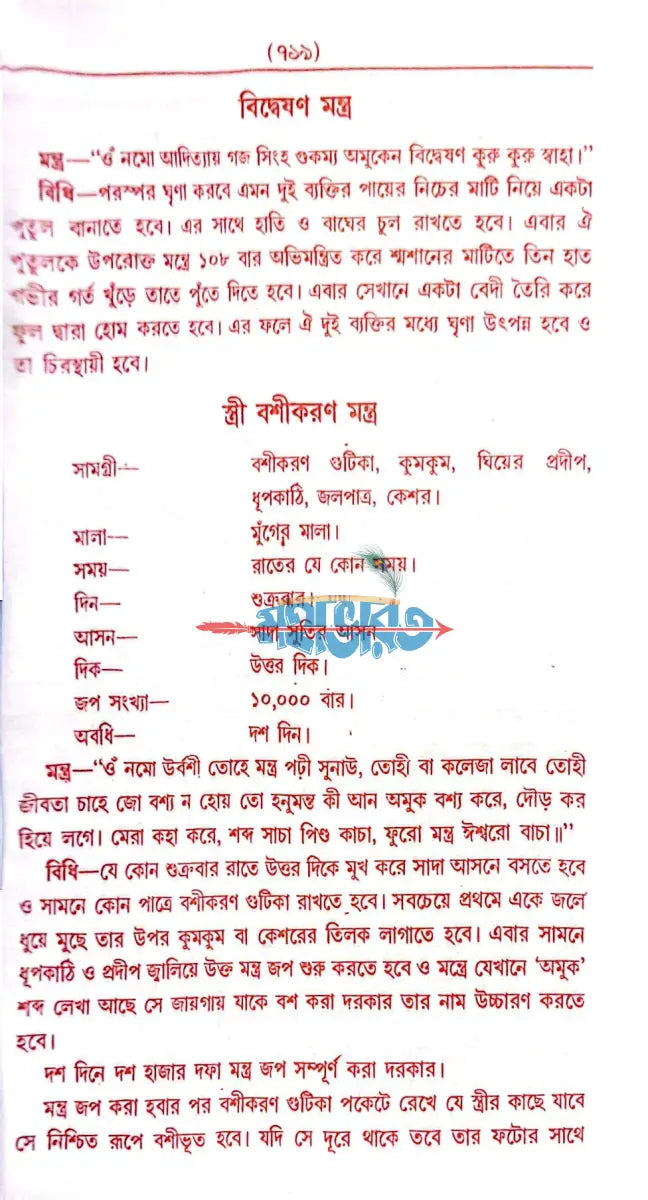 (৭১৯)
বিদ্বেষণ মন্ত্র
মন্ত্র—“ওঁ নমো আদিত্যায় গজ সিংহ গুকম্য অমুকেন বিদ্বেষণ কুরু কুরু স্বাহা।”
বিধি—পরস্পর ঘৃণা করবে এমন দুই ব্যক্তির পায়ের নিচের মাটি নিয়ে একটা
পুতুল বানাতে হবে। এর সাথে হাতি ও বাঘের চুল রাখতে হবে। এবার ঐ
পুতুলকে উপরোক্ত মন্ত্রে ১০৮ বার অভিমন্ত্রিত করে শ্মশানের মাটিতে তিন হাত
গভীর গর্ত খুঁড়ে তাতে পুঁতে দিতে হবে। এবার সেখানে একটা বেদী তৈরি করে
ফুল দ্বারা হোম করতে হবে। এর ফলে ঐ দুই ব্যক্তির মধ্যে ঘৃণা উৎপন্ন হবে ও
তা চিরস্থায়ী হবে।
স্ত্রী বশীকরণ মন্ত্র
সামগ্রী— বশীকরণ গুটিকা, কুমকুম, ঘিয়ের প্রদীপ,
ধূপকাঠি, জলপাত্র, কেশর।
মালা— মুঁগের মালা।
সময়— রাতের যে কোন সময়।
দিন— শুক্রবার।
মহাভারত
আসন— সাদা সুতির আসন
দিক— উত্তর দিক।
জপ সংখ্যা— ১০,০০০ বার।
অবধি— দশ দিন।
মন্ত্র—“ওঁ নমো উর্বশী তোহে মন্ত্র পঢ়ী সুনাউ, তোহী বা কলেজা লাবে তোহী
জীবতা চাহে জো বশ্য ন হোয় তো হনুমন্ত কী আন অমুক বশ্য করে, দৌড় কর
হিয়ে লগে। মেরা কহা করে, শব্দ সাচা পিণ্ড কাচা, ফুরো মন্ত্র ঈশ্বরো বাচা॥”
বিধি—যে কোন শুক্রবার রাতে উত্তর দিকে মুখ করে সাদা আসনে বসতে হবে
ও সামনে কোন পাত্রে বশীকরণ গুটিকা রাখতে হবে। সবচেয়ে প্রথমে একে জলে
ধুয়ে মুছে তার উপর কুমকুম বা কেশরের তিলক লাগাতে হবে। এবার সামনে
ধূপকাঠি ও প্রদীপ জ্বালিয়ে উক্ত মন্ত্র জপ শুরু করতে হবে ও মন্ত্রে যেখানে ‘অমুক’
শব্দ লেখা আছে সে জারগায় যাকে বশ করা দরকার তার নাম উচ্চারণ করতে
হবে।
দশ দিনে দশ হাজার দফা মন্ত্র জপ সম্পূর্ণ করা দরকার।
মন্ত্র জপ করা হবার পর বশীকরণ গুটিকা পকেটে রেখে যে স্ত্রীর কাছে যাবে
সে নিশ্চিত রূপে বশীভূত হবে। যদি সে দূরে থাকে তবে তার ফটোর সাথে